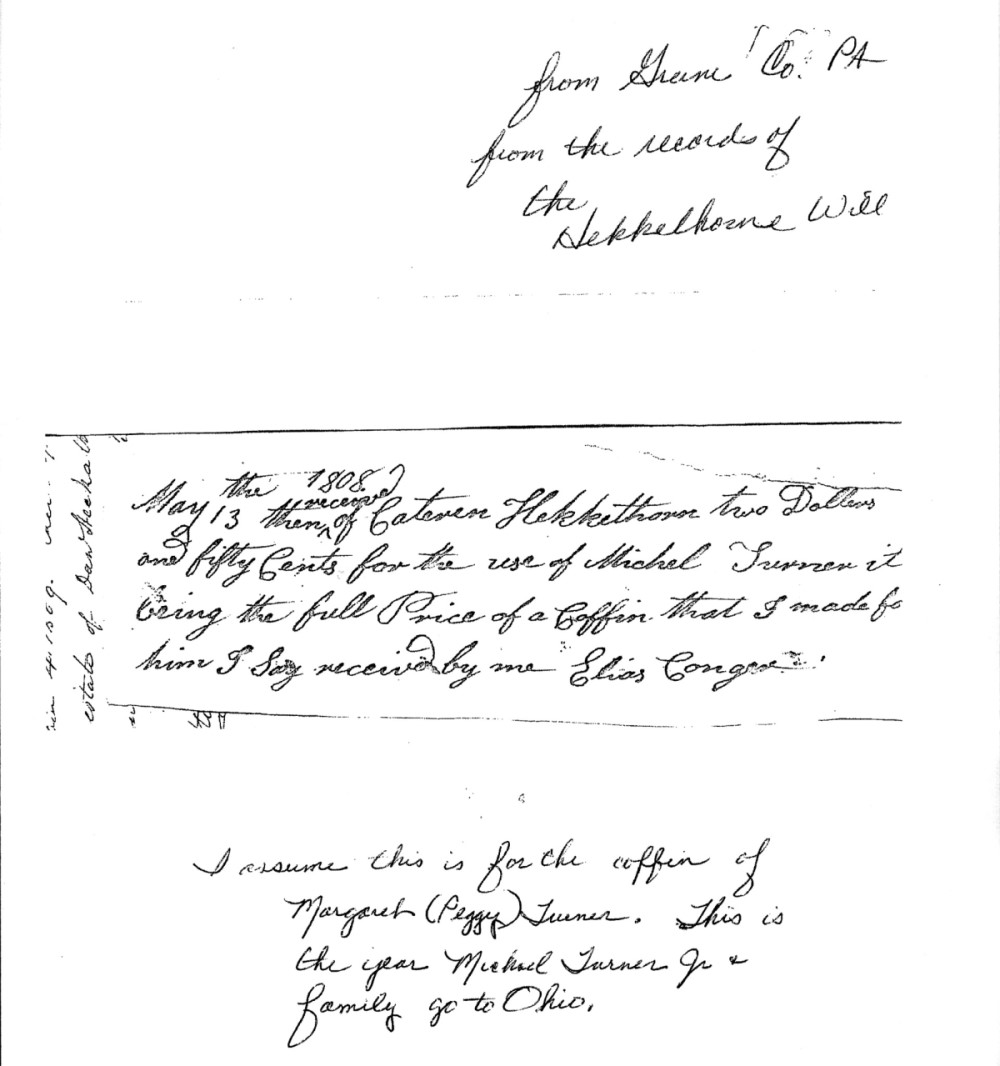 from Greene Co. PA
from the records of
the
Hekkelhorne Will
May the 13 1808 then received of Cateren Hekkethorn two Dollers
and fifty Cents for the use of Michel Turner it
being the full Price of a Coffin that I made fo
him I Say received by me Elias Conger
estate of Dan
I assume this is for the coffin of
Margaret (Peggy) Turner. This is
the year Michael Turner Jr &
family go to Ohio.